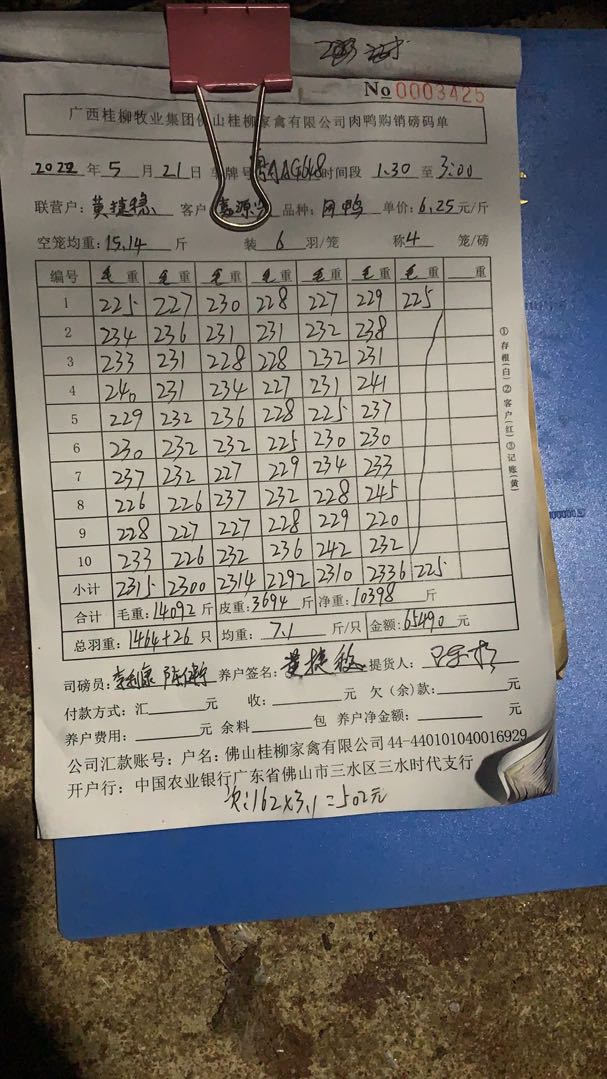 No 0003425
广西桂柳牧业集团佛山桂柳家禽有限公司肉鸭购销磅码单
2022 年 5 月 21 日 车牌号 AAG648 时间段 1.30 至 3:00
联营户: 黄捷稳 客户 源 品种: 肉鸭 单价: 6.25 元/斤
空笼均重: 15.14 斤 装 6 羽/笼 称 4 笼/磅
编号 毛重 毛重 毛重 毛重 毛重 毛重 毛重 重
1 225 227 230 228 227 229 225
2 234 236 231 231 232 238
3 233 231 228 228 232 231
4 240 231 234 227 231 241
5 229 232 236 228 225 237
6 230 232 232 225 230 230
7 237 232 227 229 234 233
8 226 226 237 232 228 245
9 228 227 227 228 229 220
10 233 226 232 236 242 232
小计 2315 2300 2314 2292 2310 2336 225
合计 毛重: 14092 斤 皮重: 3694 斤 净重: 10398 斤
总羽重: 1464+26 只 均重: 7.1 斤/只 金额: 65490 元
司磅员: 养户签名: 黄捷稳 提货人:
付款方式: 汇 元 收: 元 欠(余)款: 元
养户费用: 元 余料 包 养户净金额: 元
公司汇款账号: 户名: 佛山桂柳家禽有限公司 44-440101040016929
开户行: 中国农业银行广东省佛山市三水区三水时代支行
162×3.1=502元
①存根(白)②客户(红)③记账(黄)